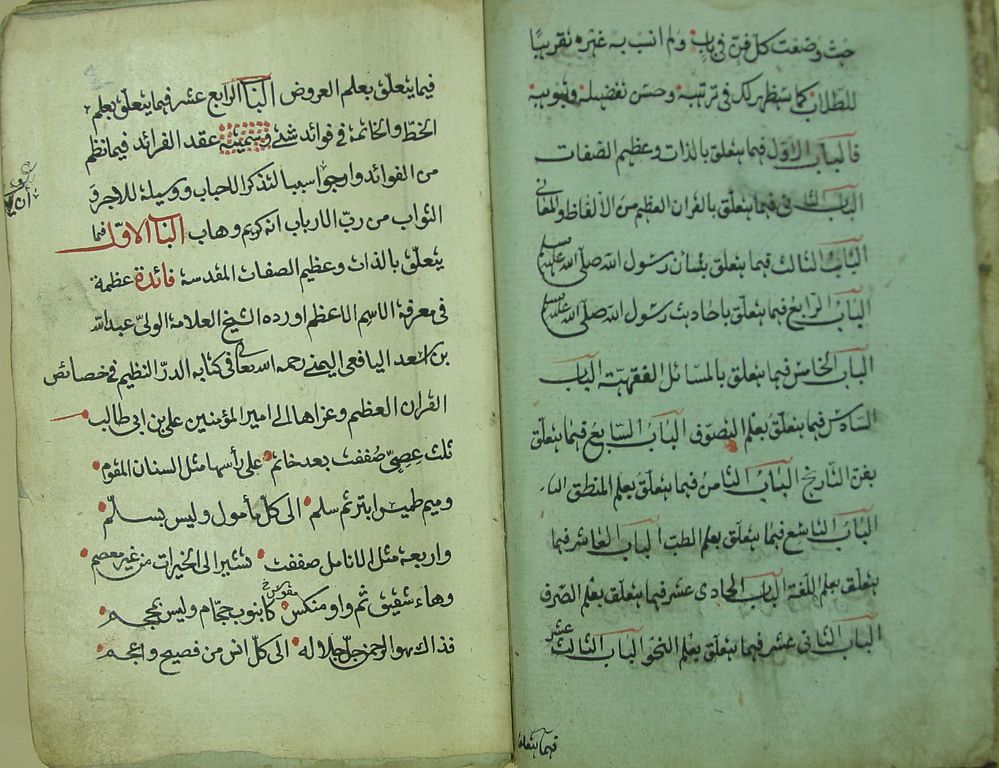 حيث وضعت كل فن في باب ولم انب به غيره تقريبا
للطلاب كما سيظهر لك في ترتيبه وحسن تفضيله وتبويبه
فالباب الاول فيما يتعلق بالذات وعظيم الصفات
الباب الثاني فيما يتعلق بالقران العظيم من الالفاظ والمعاني
الباب الثالث فيما يتعلق بشأن رسول الله صلى الله عليه وسلم
الباب الرابع فيما يتعلق باحاديث رسول الله صلى الله عليه وسلم
الباب الخامس فيما يتعلق بالمسائل الفقهية الباب
السادس فيما يتعلق بعلم التصوف الباب السابع فيما يتعلق
بفن التاريخ الباب الثامن فيما يتعلق بعلم المنطق
الباب التاسع فيما يتعلق بعلم الطب الباب العاشر فيما
يتعلق بعلم اللغة الباب الحادى عشر فيما يتعلق بعلم الصرف
الباب الثانى عشر فيما يتعلق بعلم النحو الباب الثالث عشر
فيما يتعلق
فيما يتعلق بعلم العروض الباب الرابع عشر فيما يتعلق بعلم
الخط والخاتمة في فوائد شتى وسميته عقد الفرائد فيما نظم
من الفوائد وارجو سببا لتذكر الاحباب ووسيلة للاجر و
الثواب من رب الارباب انه كريم وهاب الباب الاول فيما
يتعلق بالذات وعظيم الصفات المقدسة فائدة عظمة
في معرفة الاسم الاعظم اورده الشيخ العلامة الولى عبد الله
بن اسعد اليافعى اليمنى رحمه الله تعالى في كتابه الدر النظيم في خصائص
القران العظيم وعزاها الى امير المؤمنين على بن ابى طالب
ثلث عصى صففت بعد خاتم على رأسها مثل السنان المقوم
وميم طميس ابتر ثم سلم الى كل مأمول وليس بسلم
واربعة مثل الانامل صففت تشير الى الخيرات من غير معصم
وهاء شقيق ثم واو منكس كانبوب حجام وليس بمحجم
مقوس خ
فذاك هو الرحمن جل جلاله الى كل انس من فصيح واعجم